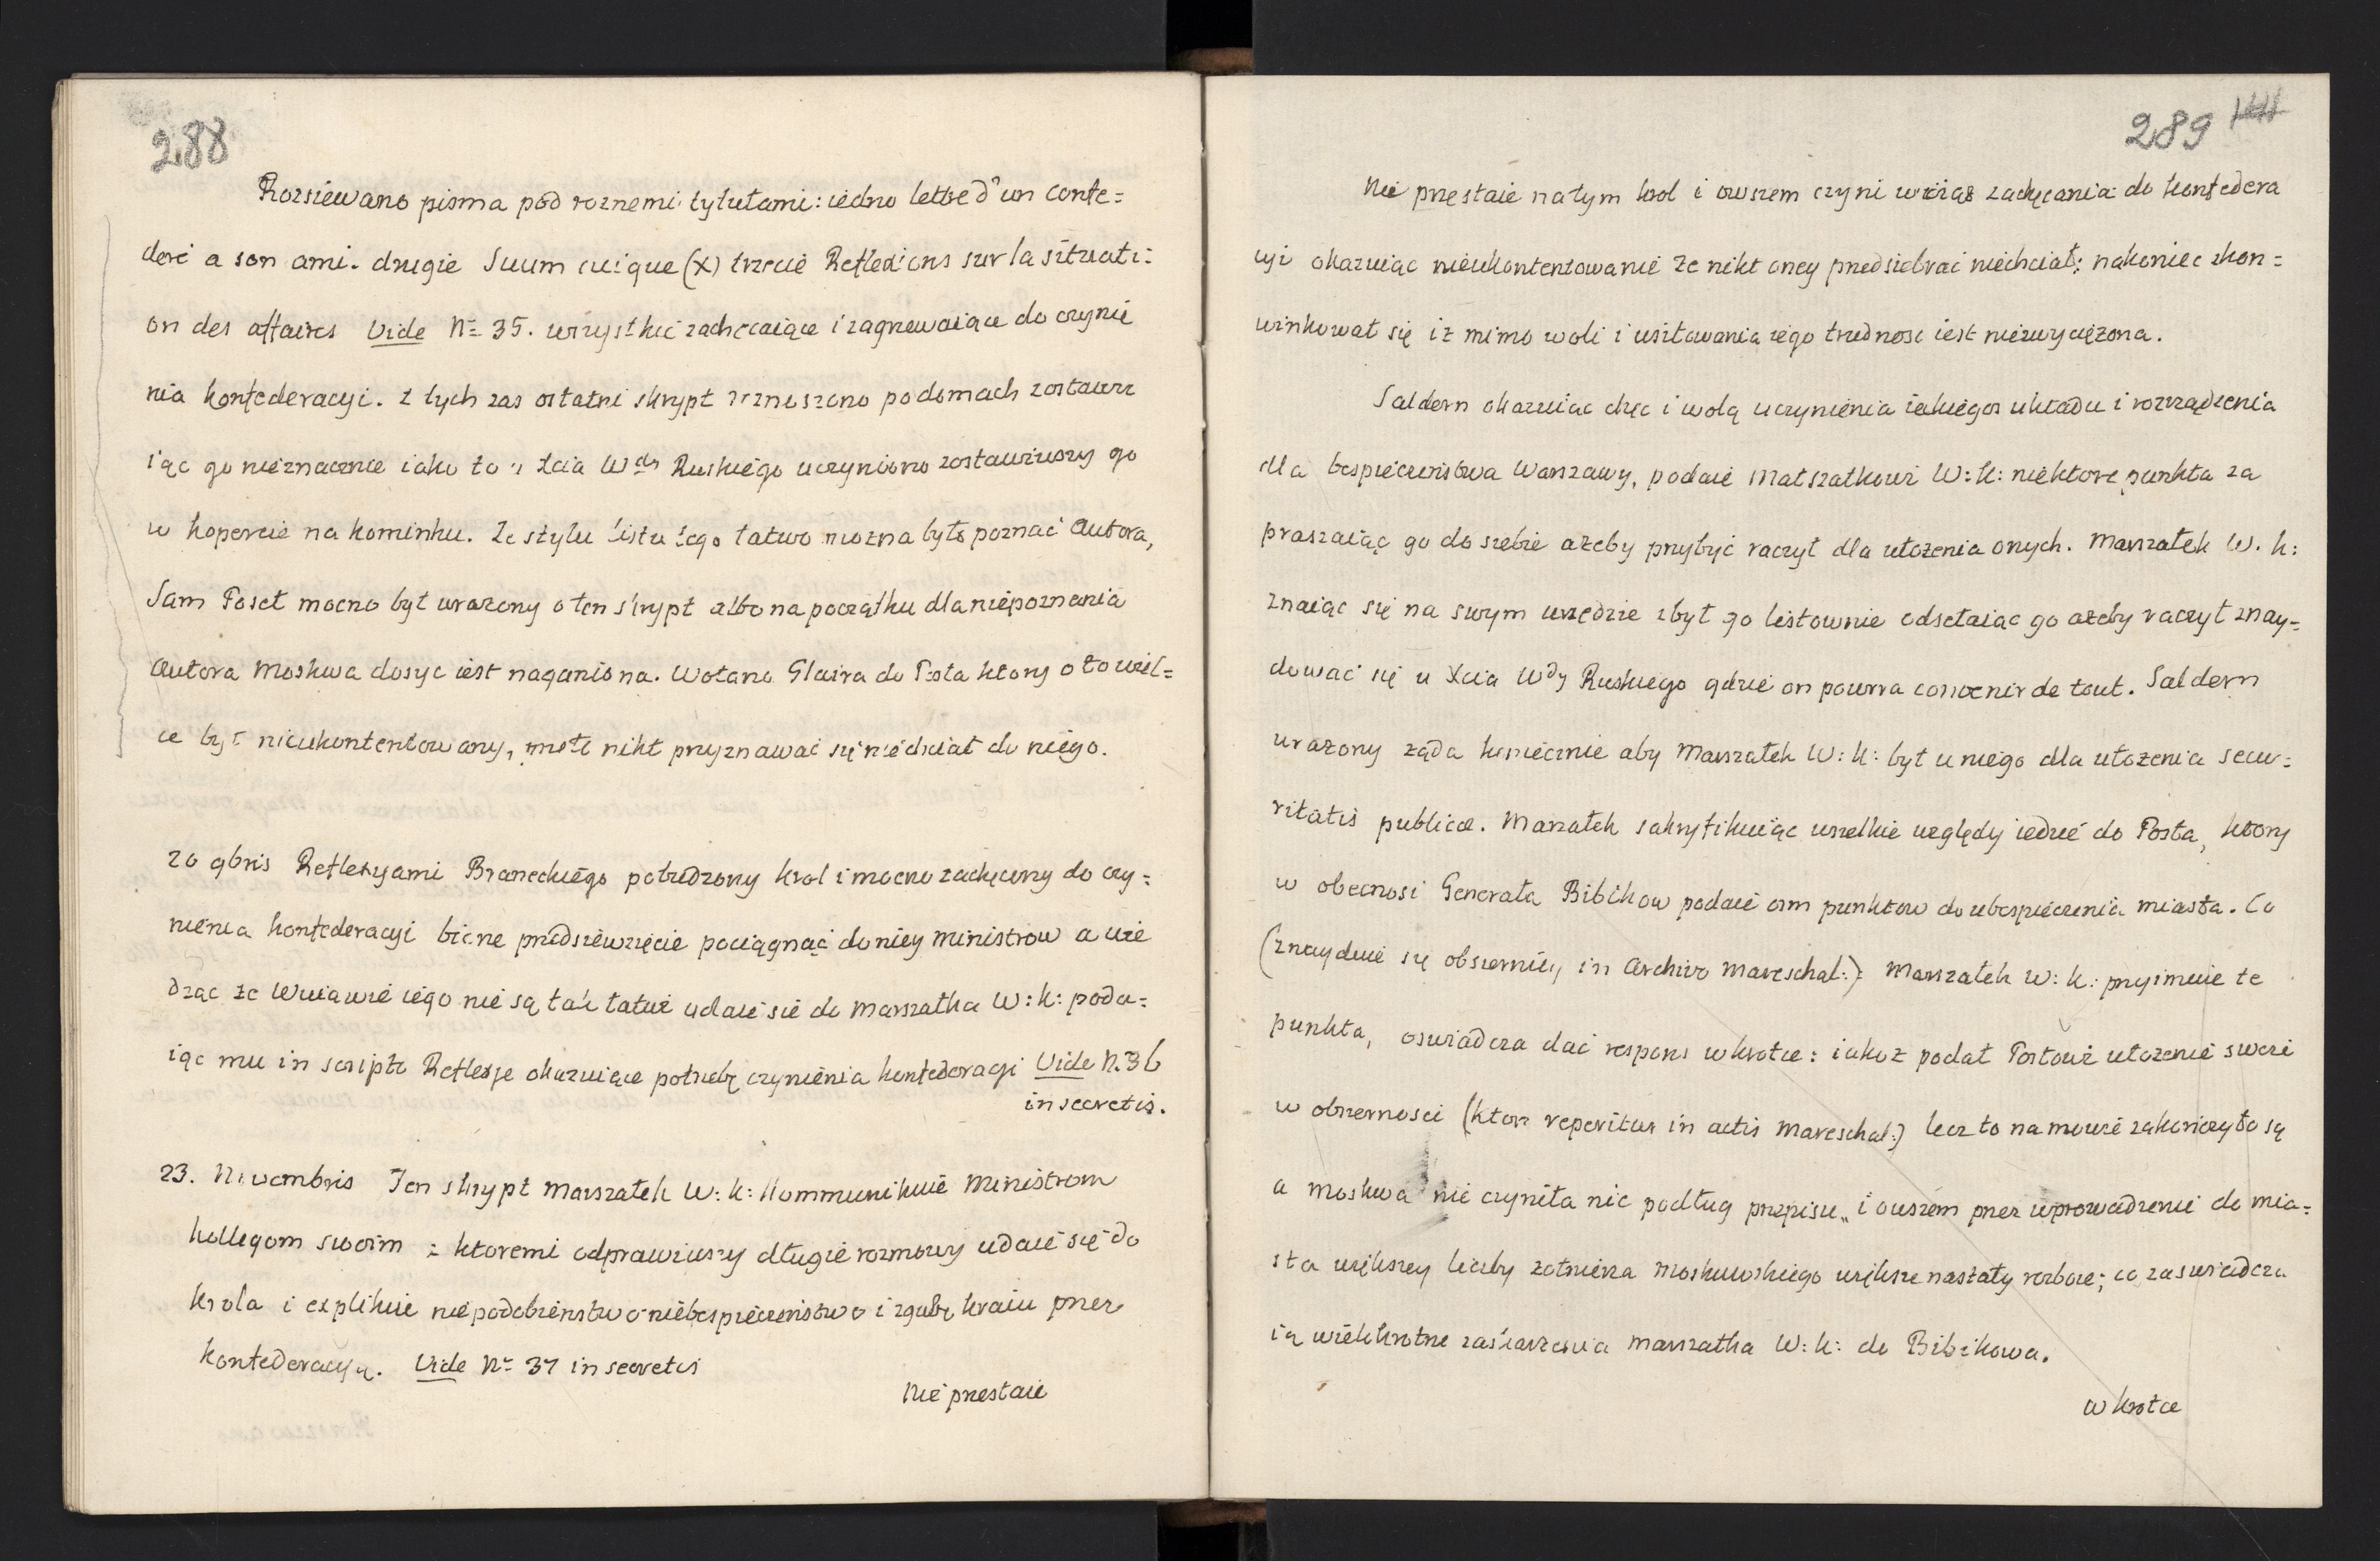 288
Rozsiewano pisma pod roznemi tytułami: iedno lettre d'un confe=
deré a son ami. drugie Suum cuique (X) trzecie Reflexions sur la situati=
on des affaires Vide Nº 35. wszystkie zachęcaiące i zagrzewaiące do czynie
nia konfederacyi. z tych zas ostatni skrypt roznoszono po domach zostawu
iąc go nieznacznie iako to u Xcia Wdy Ruskiego uczyniono zostawiwszy go
w kopercie na kominku. Ze stylu listu tego łatwo mozna było poznać Autora,
Sam Poseł mocno był urazony o ten skrypt albo na początku dla niepoznania
Autora Moskwa dosyc iest naganiona. Wołano Glaira do Posła ktory o to wiel=
ce był nieukontentowany, y nikt przyznawać się niechciał do niego.
20 9bris Reflexyami Braneckiego pobudzony krol i mocno zachęcony do czy=
nienia konfederacyi bierze przedsiewzięcie pociągnąć do niey Ministrow a wie
dząc ze Wuiowie iego nie są tak łatwi udaie się do Marszałka W: K: poda=
iąc mu in scripto Reflexje okazuiące potrzebę czynienia konfederacyi Vide N. 36
in secretis.
23. Novembris Ten skrypt Marszałek W: K: Kommunikuie Ministrom
kollegom swoim z ktoremi odprawiwszy długie rozmowy udaie się do
krola i explikuie niepodobieństwo niebespieczeństwo i zgubę kraiu przez
konfederacyą. Vide Nº 37 in secretis
Nie przestaie
289
Nie przestaie na tym krol i owszem czyni wciąż zachęcania do konfedera
cyi okazuiąc nieukontentowanie że nikt oney przedsiebrać niechciał; nakoniec zkon=
winkował się iż mimo woli i usiłowania iego trudnosc iest niezwyciężona.
Saldern okazuiac chęc i wolą uczynienia iakiegoś układu i rozrządzenia
dla bespieczeństwa Warszawy, podaie Marszałkowi W: K: niektore punkta za
praszaiąc go do siebie ażeby przybyć raczył dla ułożenia onych. Marszałek W. K:
znaiąc się na swym urzędzie zbył go listownie odsełaiąc go ażeby raczył znay=
dować się u Xcia Wdy Ruskiego gdzie on pourra convenir de tout. Saldern
urażony żąda koniecznie aby Marszałek W: K: był u niego dla ułożenia secu=
ritatis publicæ. Marszałek sakryfikuiąc wszelkie względy iedzie do Posła, ktory
w obecnosci Generała Bibikow podaie osm punktow do ubespieczenia miasta. Co
(znayduie się obszerniey in Archivo Mareschal:) Marszałek W: K: przyimuie te
punkta, oswiadcza dać respons wkrotce: iakoż podał Posłowi ułożenie swoie
w obszernosci (ktore reperitur in actis Mareschal:) lecz to na mowie zakończyło są
a Moskwa nie czyniła nic podług przepisu„ i owszem przez wprowadzenie do mia=
sta większey liczby żołnierza moskiewskiego większe nastały rozboie; co zaswiadcza
ią wielokrotne zaskarzenia Marszałka W: K: do Bibikowa.
wkrotce